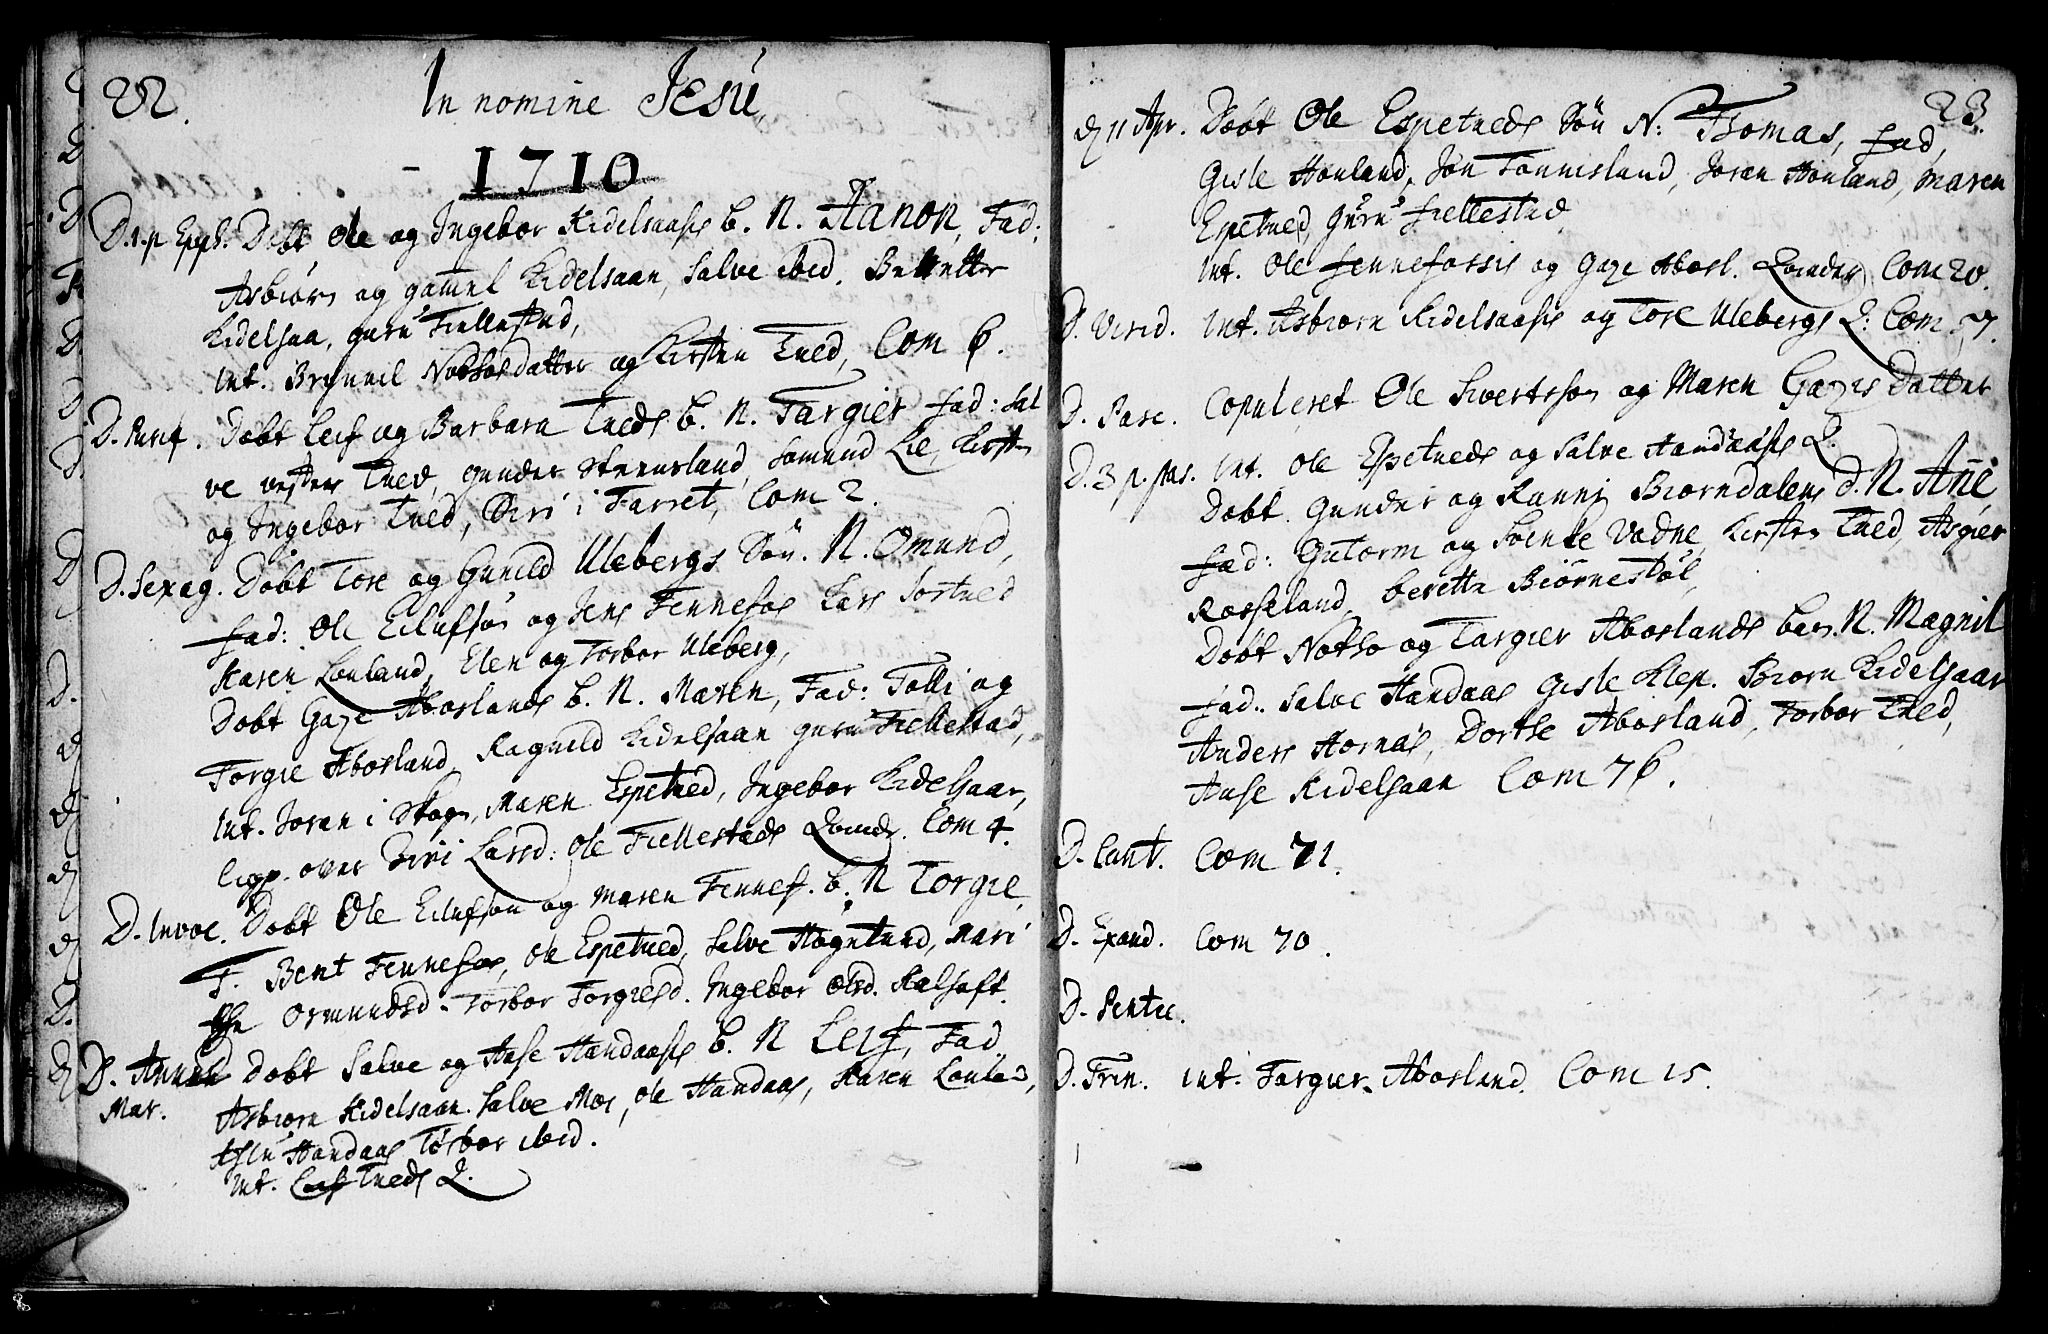 22.
In nomine Jesu,
1710
D. 1. p Epph. Døbt Ole og Ingebor Kidelsaass b. N. Aanon, Fad:
Asbiørn og gammel Kidelsaan, Salve ibid.
Kidelsaa, guru Fiellestad,
Int. Brynnil Notsos datter og Kirsten Tued, Com 6.
D. Purif. Døbt Leif og Barbara Tueds b. N. Targier fad: Sal
ve vesten Tued, gunder Steensland, Somund Lie, Kirsten
og Ingebor Tued, Siri i Farret, Com 2.
D. Sexag. Døbt Tore og Gunild Ulebergs Søn. N. Omund,
fad: Ole Eilufsøn og Jens Fennefos Lars Sortued
Karen Lonland, Elen og Torbor Uleberg,
Døbt Gaze Aboslands b. N. Maren, Fad: Tolli og
Torgie Abosland, Ragnild Kidelsaan guru Fiellestad,
Int. Joran i Skogen, Maren Espetued, Ingebor Kidelsaar,
Ligp. over Siri Larsd: Ole Fiellestads Qvinde. Com 4.
D. Invoc. Døbt Ole Eilufsøn og Maren Fennef. b. N Torgie,
F. Bent Fennefos, Ole Espetued, Salve Hognlund, Mari
Osmundsd. Torbor Torgiesd. Ingebor Olsd. Kalhoft.
D. Annun Døbt Salve og Aase Handaass b. N Leif, Fad
Mar. Asbiørn Kidelsaan. Salve Moe, Ole Handaas, Karen Lonland,
Aslu Handaas Torbor ibid.
Int. Leif Tueds Q.
23.
D 11 Apr. Døbt Ole Espetueds Søn N: Thomas, fad,
Gisle Honland, Jon Tonnisland, Joran Honland, Maren
Espetued, Guru Fiellestad
Int. Ole Fennefossis og Gaze Abosl. Qvinder Com 20.
D. Virid. Int. Asbiørn Kidelsaass og Tore Ulebergs Q: Com 57.
D. Pasc. Copuleret Ole Sivertsøn og Maren Gazis Datter
D. 3 p. pas. Int. Ole Espetueds og Salve Handaass Q.
Døbt. Gunder og Ranni Biørndalens d. N. Añe
fad: Gutorm og Svenke Vadne, Kirsten Tued, Asgier
Rosseland, berette Biørnestøl,
Døbt Notso og Targier Aboslands barn. N. Magnil
fad.. Salve Handaas Gisle Klep. Biørn Kidelsaar
Anders Hornäs, Dorthe Abosland, Torbor Tued,
Aase Kidelsaan Com 76.
D. Cant. Com 71.
D. Exaud. Com 70.
D. Pentec.
D. Trin. Int. Targier Abosland. Com 15.